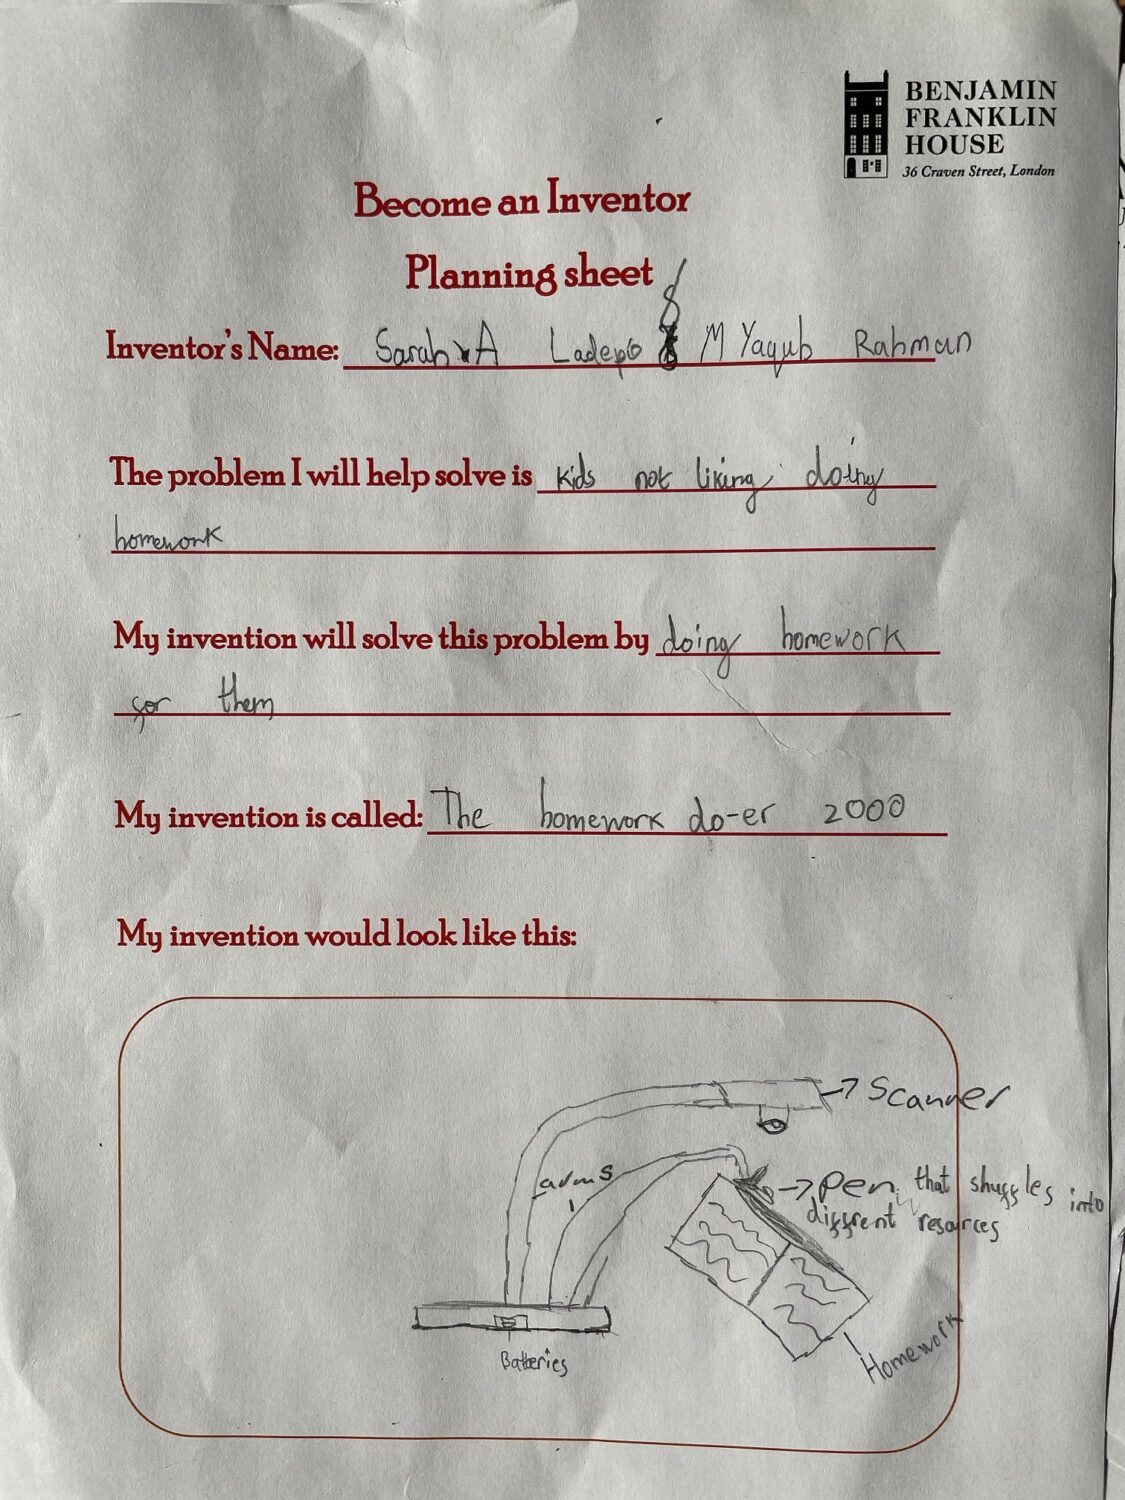 BENJAMIN
FRANKLIN
HOUSE
36 Craven Street, London
Become an Inventor
Planning sheet
Inventor's Name: Sarah A Ladepo & M Yaqub Rahman
The problem I will help solve is kids not liking doing
homework
My invention will solve this problem by doing homework
for them
My invention is called: The homework do-er 2000
My invention would look like this:
Scanner
arms
Pen that shuffles into
different resorces
Homework
Batteries